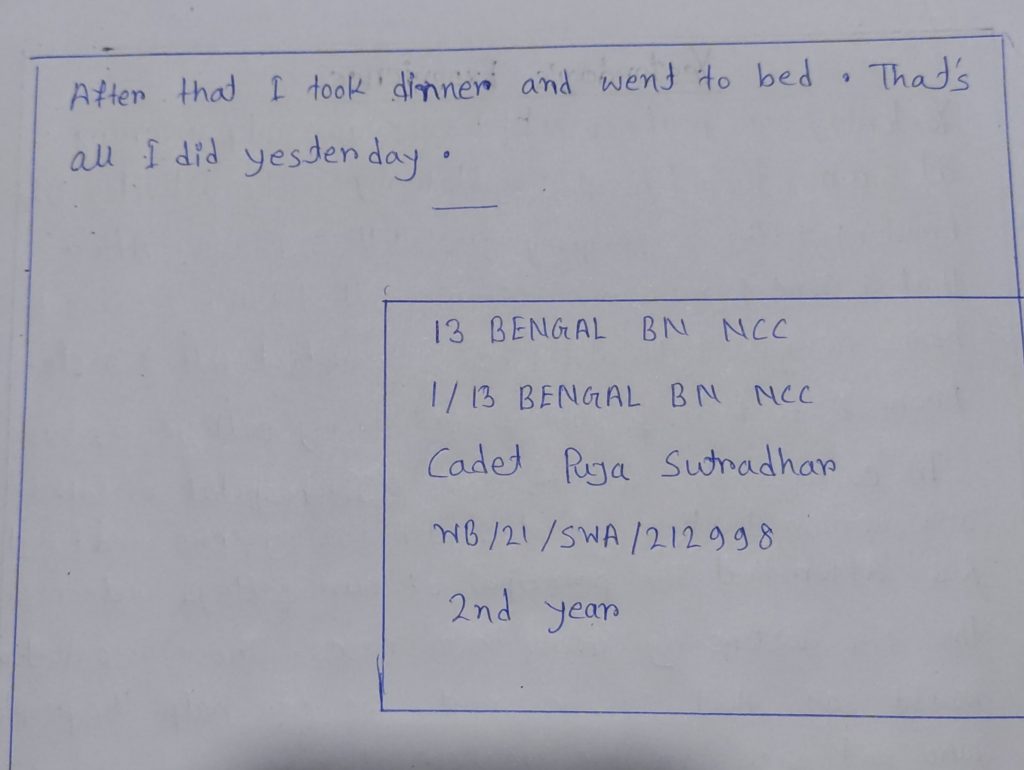 After that I took dinner and went to bed. That's
all I did yesterday.
13 BENGAL BN NCC
1/13 BENGAL BN NCC
Cadet Puja Sutradhar
WB/21/SWA/212998
2nd year